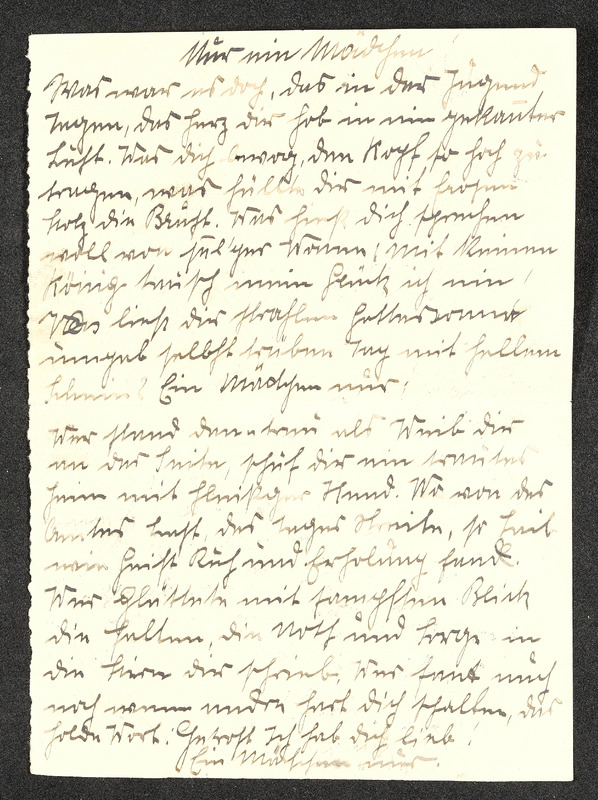 Nur ein Mädchen!
Was war es doch, das in der Jugend
Tagen, das Herz dir hob in nie gekanter
Luft. Was dich bewog, den Kopf so hoch zu
tragen, was füllte dir mit frohem
Stolz die Brust. Was hieß dich sprechen
voll von sel'ger Wonne, mit keinem
König tausch mein Glück ich ein!
Was ließ dir strahlen Gottessonne
umgab selbst trüben Tag mit hellem
Schein? Ein Mädchen nur!
Wer stand dan treu als Weib dir
an der Seite, schuf dir ein trautes
Heim mit fleißger Hand. Wo von des
Amtes Last, des Tages Streite, so Leib
wie Geist Ruh und Erholung fand.
Wer glättete mit sampften Blick
die Falten, die Noth und Sorge in
die Stirn dir schrieb. Wer fand auch
noch wenn andre hart dich schalten, das
holde Wort: Getrost Ich hab dich lieb!
Ein Mädchen nur.